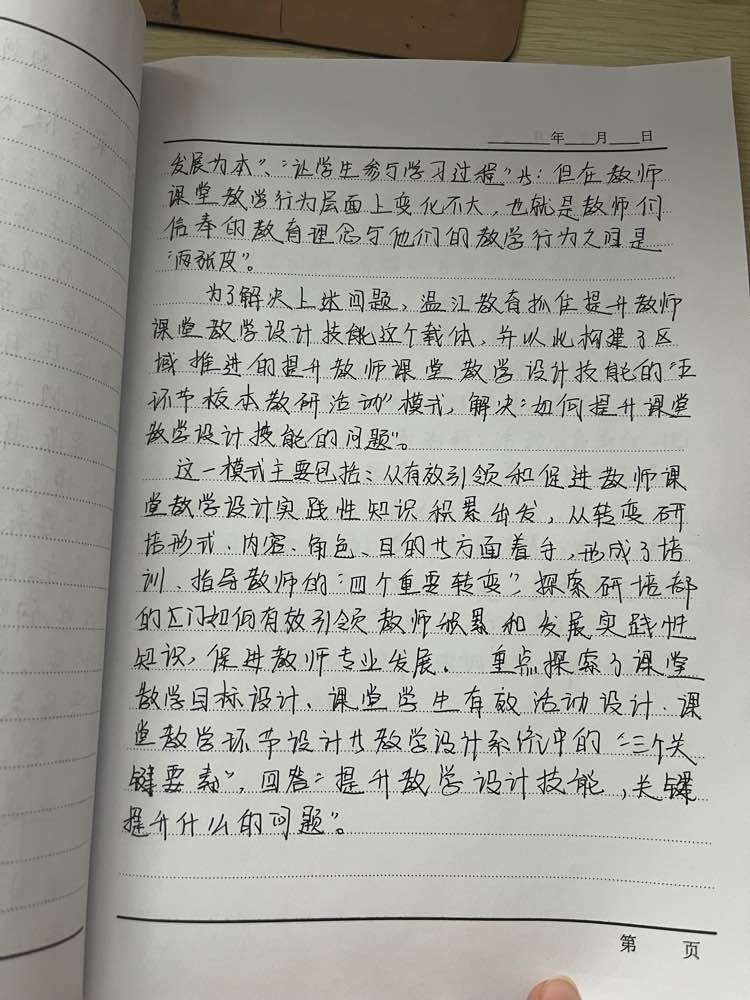 年 月 日
发展为本”、“让学生参与学习过程”等；但在教师
课堂教学行为层面上变化不大，也就是教师们
信奉的教育理念与他们的教学行为之间是
“两张皮”。
为了解决上述问题，温江教育抓住提升教师
课堂教学设计技能这个载体，并以此构建了区
域推进的提升教师课堂教学设计技能的“五
环节校本教研活动”模式，解决“如何提升课堂
教学设计技能的问题”。
这一模式主要包括：从有效引领和促进教师课
堂教学设计实践性知识积累出发，从转变研
培形式、内容、角色、目的等方面着手，形成了培
训、指导教师的“四个重要转变”，探索研培部
的门如何有效引领教师积累和发展实践性
知识，促进教师专业发展。重点探索了课堂
教学目标设计、课堂学生有效活动设计、课
堂教学环节设计等教学设计系统中的“三个关
键要素”，回答“提升教学设计技能，关键
提升什么的问题”。
第 页